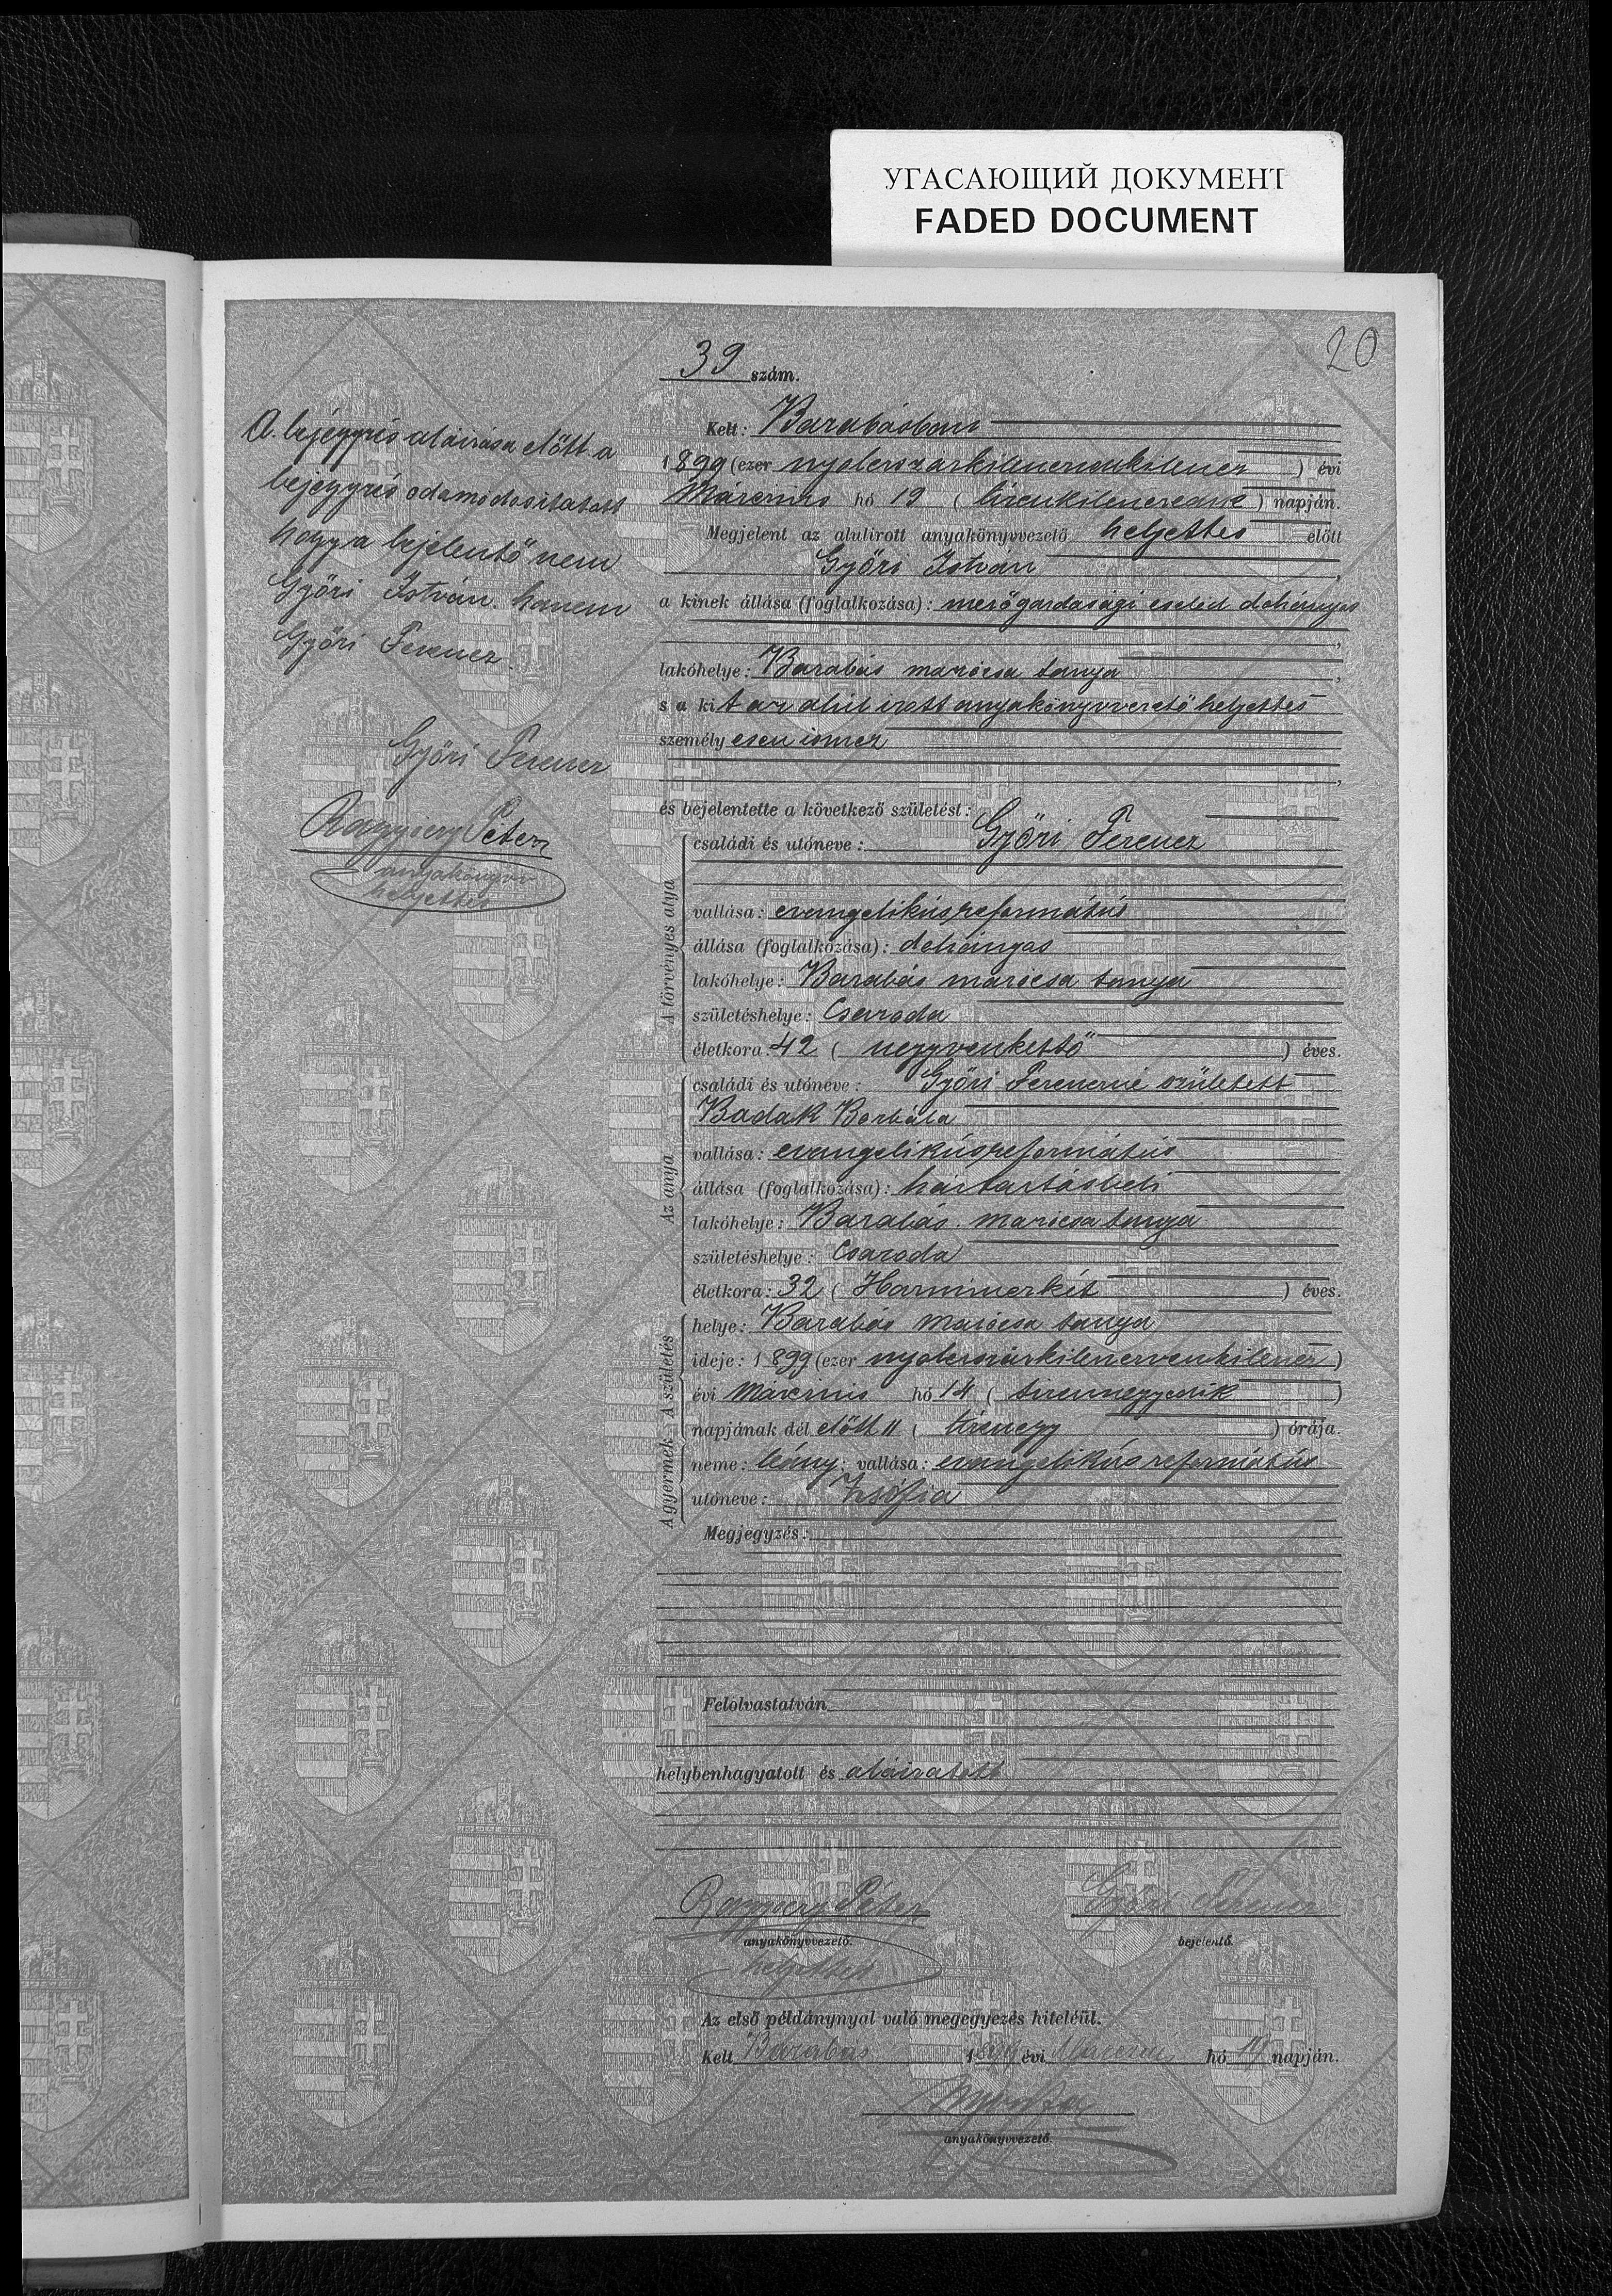 УГАСАЮЩИЙ ДОКУМЕНТ
FADED DOCUMENT
20
39 szám.
Kelt: Barabásban
1899 (ezer nyolcszázkilencvenkilencz) évi
Márczius hó 19 (tizenkilenczedik) napján.
Megjelent az alulirott anyakönyvvezető helyettes előtt
Győri István,
a kinek állása (foglalkozása): mezőgazdasági cseléd dohányos
,
lakóhelye: Barabás maricsa tanya,
s a kit az alúl irott anyakönyvvezető helyettes
személyesen ismer
,
és bejelentette a következő születést:
A törvényes atya
családi és utóneve: Győri Ferencz
vallása: evangelikús református
állása (foglalkozása): dohányos
lakóhelye: Barabás maricsa tanya
születéshelye: Csaroda
életkora: 42 (negyvenkettő) éves.
Az anya
családi és utóneve: Győri Ferenczné született
Badak Borbála
vallása: evangelikús református
állása (foglalkozása): háztartásbeli
lakóhelye: Barabás maricsa tanya
születéshelye: Csaroda
életkora: 32 (Harminczkét) éves.
A gyermek A születés
helye: Barabás maricsa tanya
ideje: 1899 (ezer nyolcszázkilenczvenkilencz)
évi márczius hó 14 (tizennegyedik)
napjának dél előtt 11 (tizenegy) órája.
neme: leány; vallása: evangelikús református
utóneve: Zsófia
Megjegyzés:
Felolvastatván
helybenhagyatott és aláiratott
Péter
anyakönyvvezető.
helyettes
Győri Ferencz
bejelentő.
Az első példánynyal való megegyezés hiteléül.
Kelt Barabás 1899 évi Márczius hó 19 napján.
anyakönyvvezető.
A bejegyzés aláirása előtt a
bejegyzés odamódosítatott
hogy a bejelentő nem
Győri István. hanem
Győri Ferencz.
Győri Ferencz
Péter
anyakönyvv
helyettes